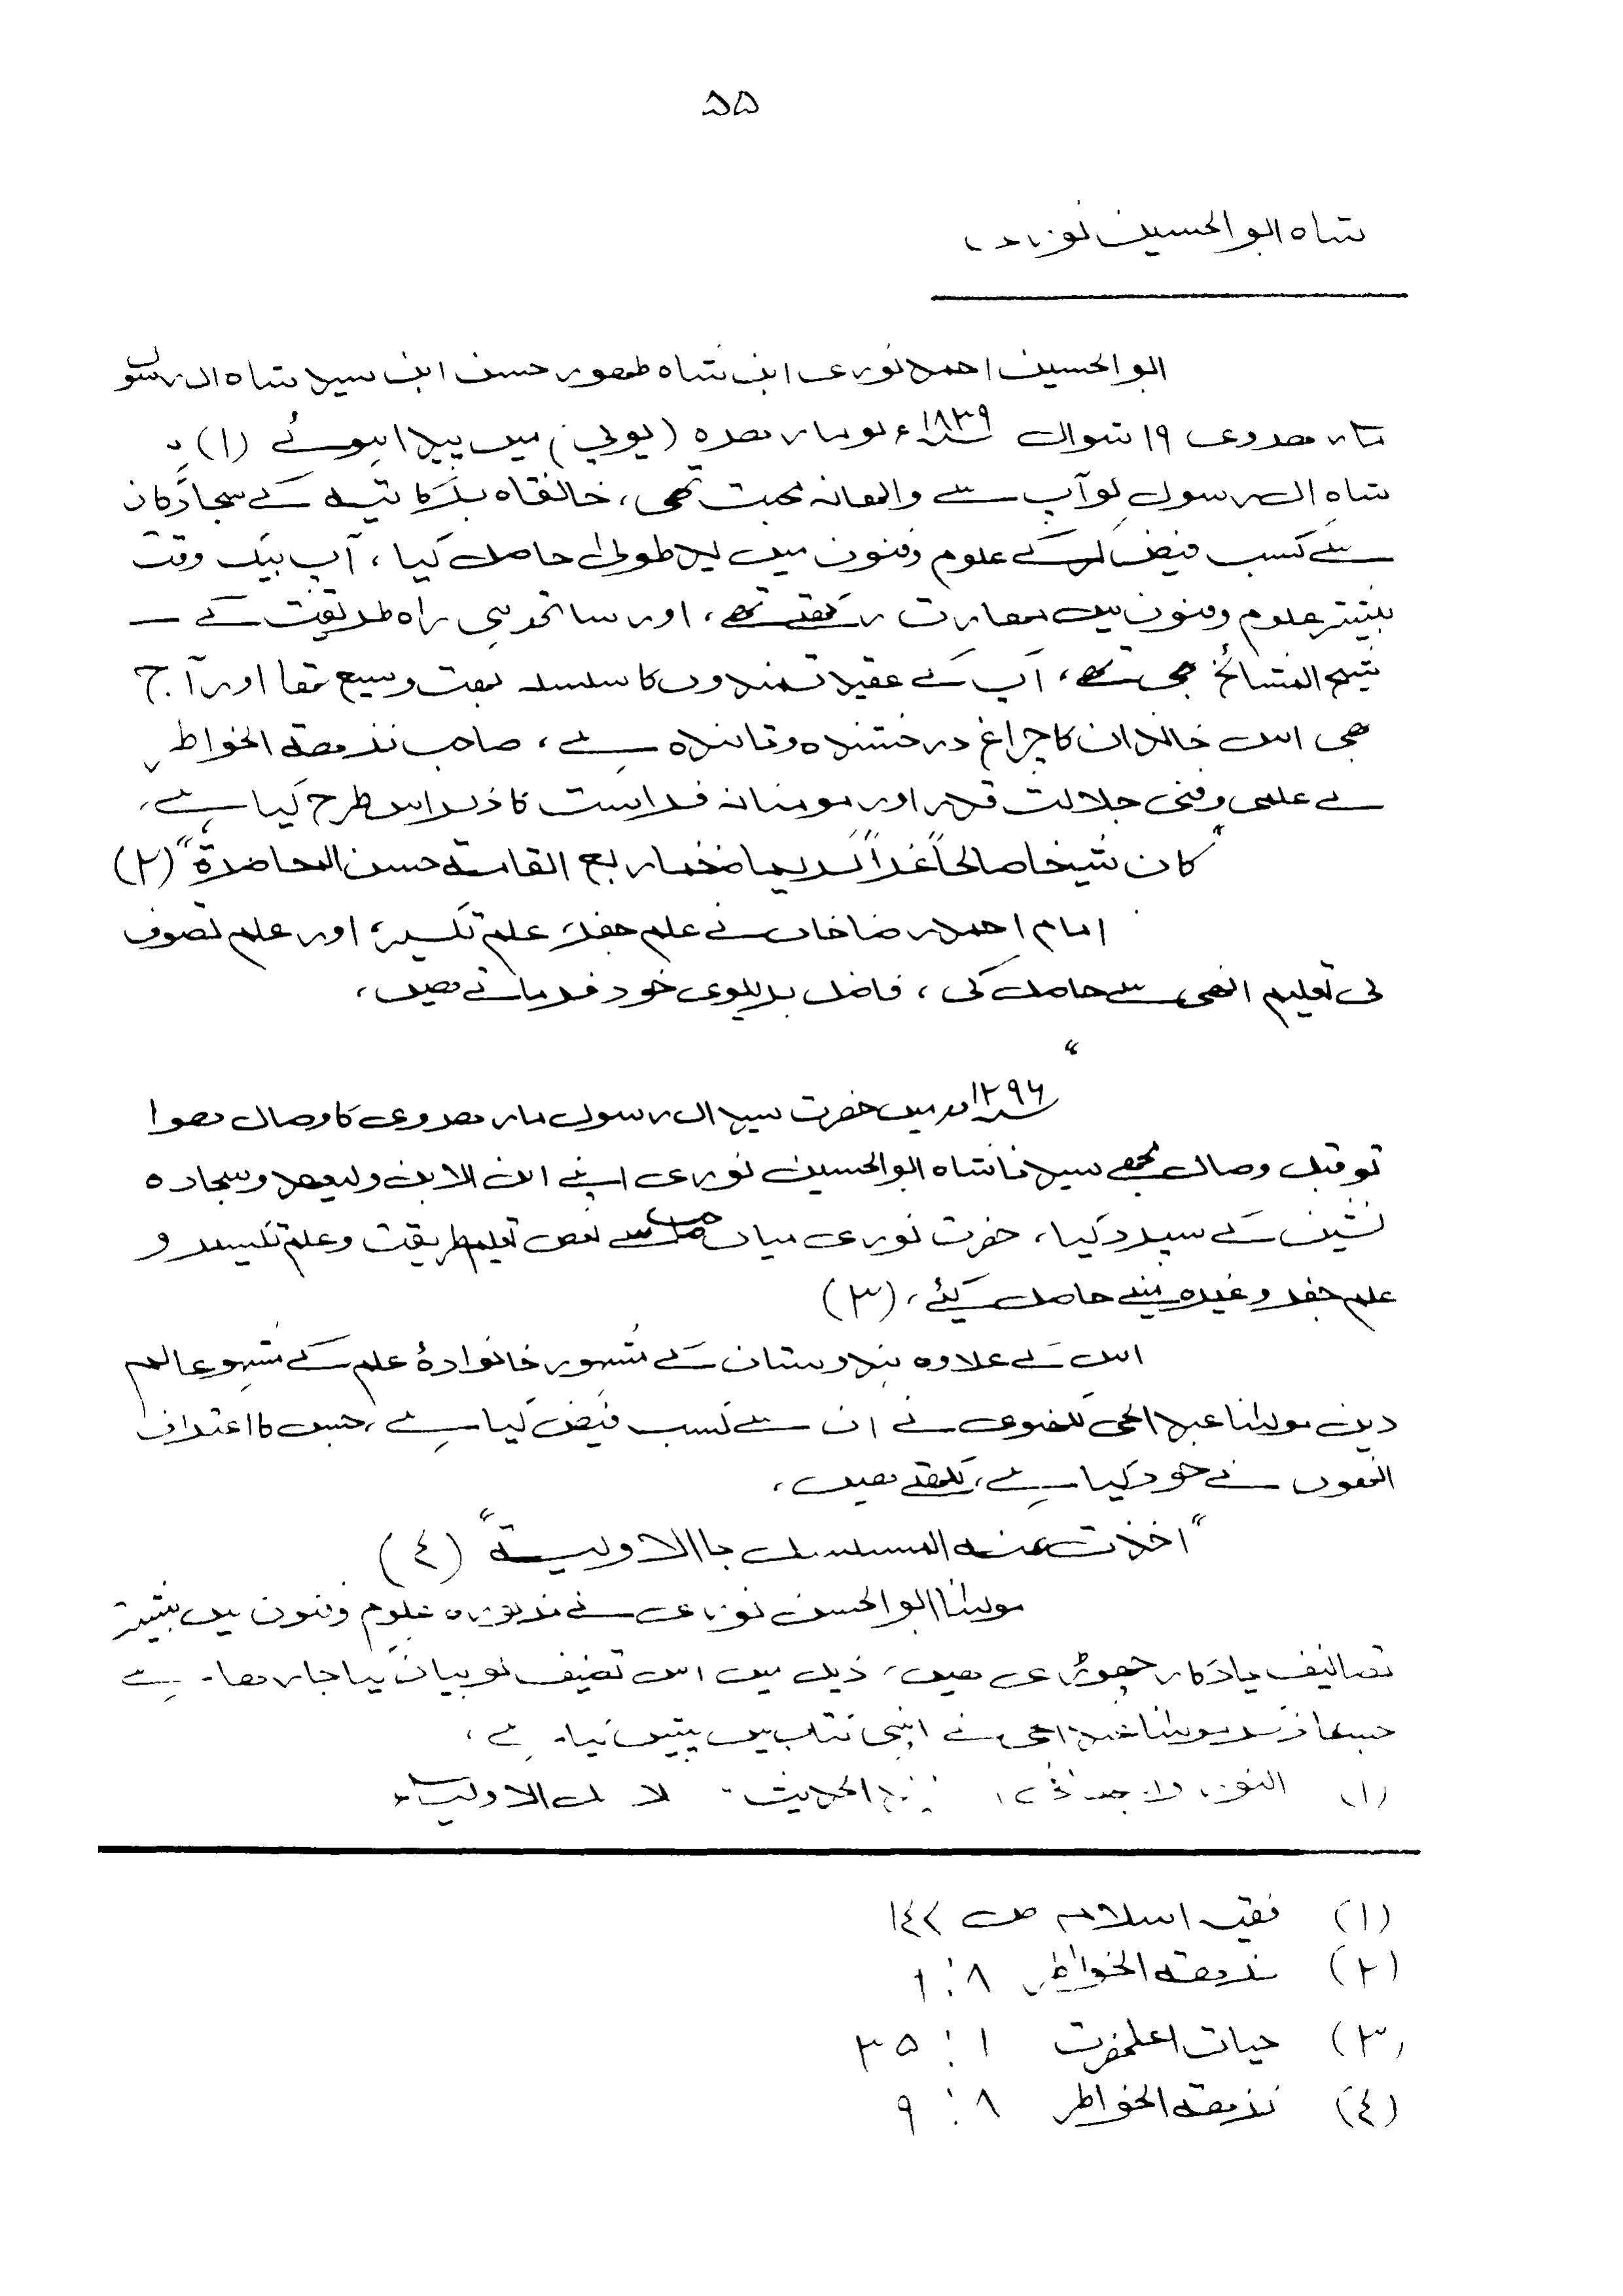 ۵۵
شاہ ابو الحسین نوری
ابو الحسین احمد نوری ابن شاہ ظھور حسن ابن سید شاہ ال رسول
مارھروی ۱۹ شوال ۱۸۳۹ء کو مارھرہ (یوپی) میں پیدا ہوئے (۱)
شاہ ال رسول کو آپ سے والھانہ محبت تھی، خانقاہ برکاتیہ کے سجادگان
سے کسب فیض کرکے علوم وفنون میں ید طولیٰ حاصل کیا، آپ بیک وقت
بیشتر علوم وفنون میں مھارت رکھتے تھے، اور ساتھ ہی راہ طریقت کے
شیخ المشائخ بھی تھے، آپ کے عقیدتمندوں کا سلسلہ بھت وسیع تھا اور آج
بھی اس خاندان کا چراغ درخشندہ وتابندہ ہے، صاحب نزھة الخواطر
نے علمی وفنی جلالت قدر اور مومنانہ فراست کا ذکر اس طرح کیا ہے،
"کان شیخا صالحاً غراً کریما ضخما ربع القامة حسن المحاضرة" (۲)
امام احمد رضا خاں نے علم جفر، علم تکسیر، اور علم تصوف
کی تعلیم انھی سے حاصل کی، فاضل بریلوی خود فرماتے ھیں،
"
۱۲۹۶ھ میں حضرت سید ال رسول مارھروی کا وصال ھوا
تو قبل وصال مجھے سیدنا شاہ ابو الحسین نوری اپنے ابن الابن ولیعھد وسجادہ
نشین کے سپرد کیا، حضرت نوری میاں صاحب سے بعض تعلیم طریقت وعلم تکسیر و
علم جفر وغیرہ مینے حاصل کیئے، (۳)
اس کے علاوہ ہندوستان کے مشہور خانوادۂ علم کے مشہو عالم
دین مولانا عبد الحی لکھنوی نے ان سے کسب فیض کیا ہے، جس کا اعتراف
انھوں نے خود کیا ہے، لکھتے ھیں،
"اخذت عنه المسلسل باالاولیة" (٤)
مولانا ابو الحسن نوری نے مذکورہ علوم وفنون میں بیشتر
تصانیف یادگار چھوڑی ھیں، ذیل میں اس تصنیف کو بیان کیا جا رھا ہے
جسکا ذکر مولانا عبد الحی نے اپنی کتاب میں پیش کیا ہے،
(۱) النور الحدیث الاولیاء
(۱) فقیہ اسلام ص ۱٤۲
(۲) نزھة الخواطر ۸ : ۱
(۳) حیات اعلحضرت ۱ : ۳۵
(٤) نزھة الخواطر ۸ : ۹